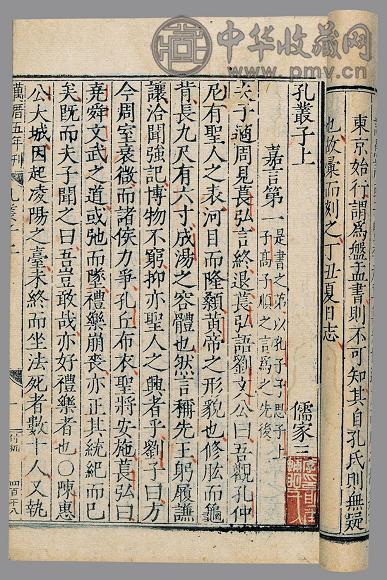 中华收藏网
http://www.pmv.cn
東京始行謂為盤盂書則不可知其自孔氏則無疑
也故彙而刻之丁丑夏日志
孔叢子上 儒家三
嘉言第一
是書之第以孔子子思子上
子高子順之言為之先後
夫子適周見萇弘言終退萇弘語劉文公曰吾觀孔仲
尼有聖人之表河目而隆顙黃帝之形貌也修肱而龜
背長九尺有六寸成湯之容體也然言稱先王躬履謙
讓洽聞強記博物不窮抑亦聖人之興者乎劉子曰方
今周室衰微而諸侯力爭孔丘布衣聖將安施萇弘曰
堯舜文武之道或弛而墜禮樂崩喪亦正其統紀而已
矣既而夫子聞之曰吾豈敢哉亦好禮樂者也○陳惠
公大城因起凌陽之臺未終而坐法死者數十人又執
萬曆五年刊